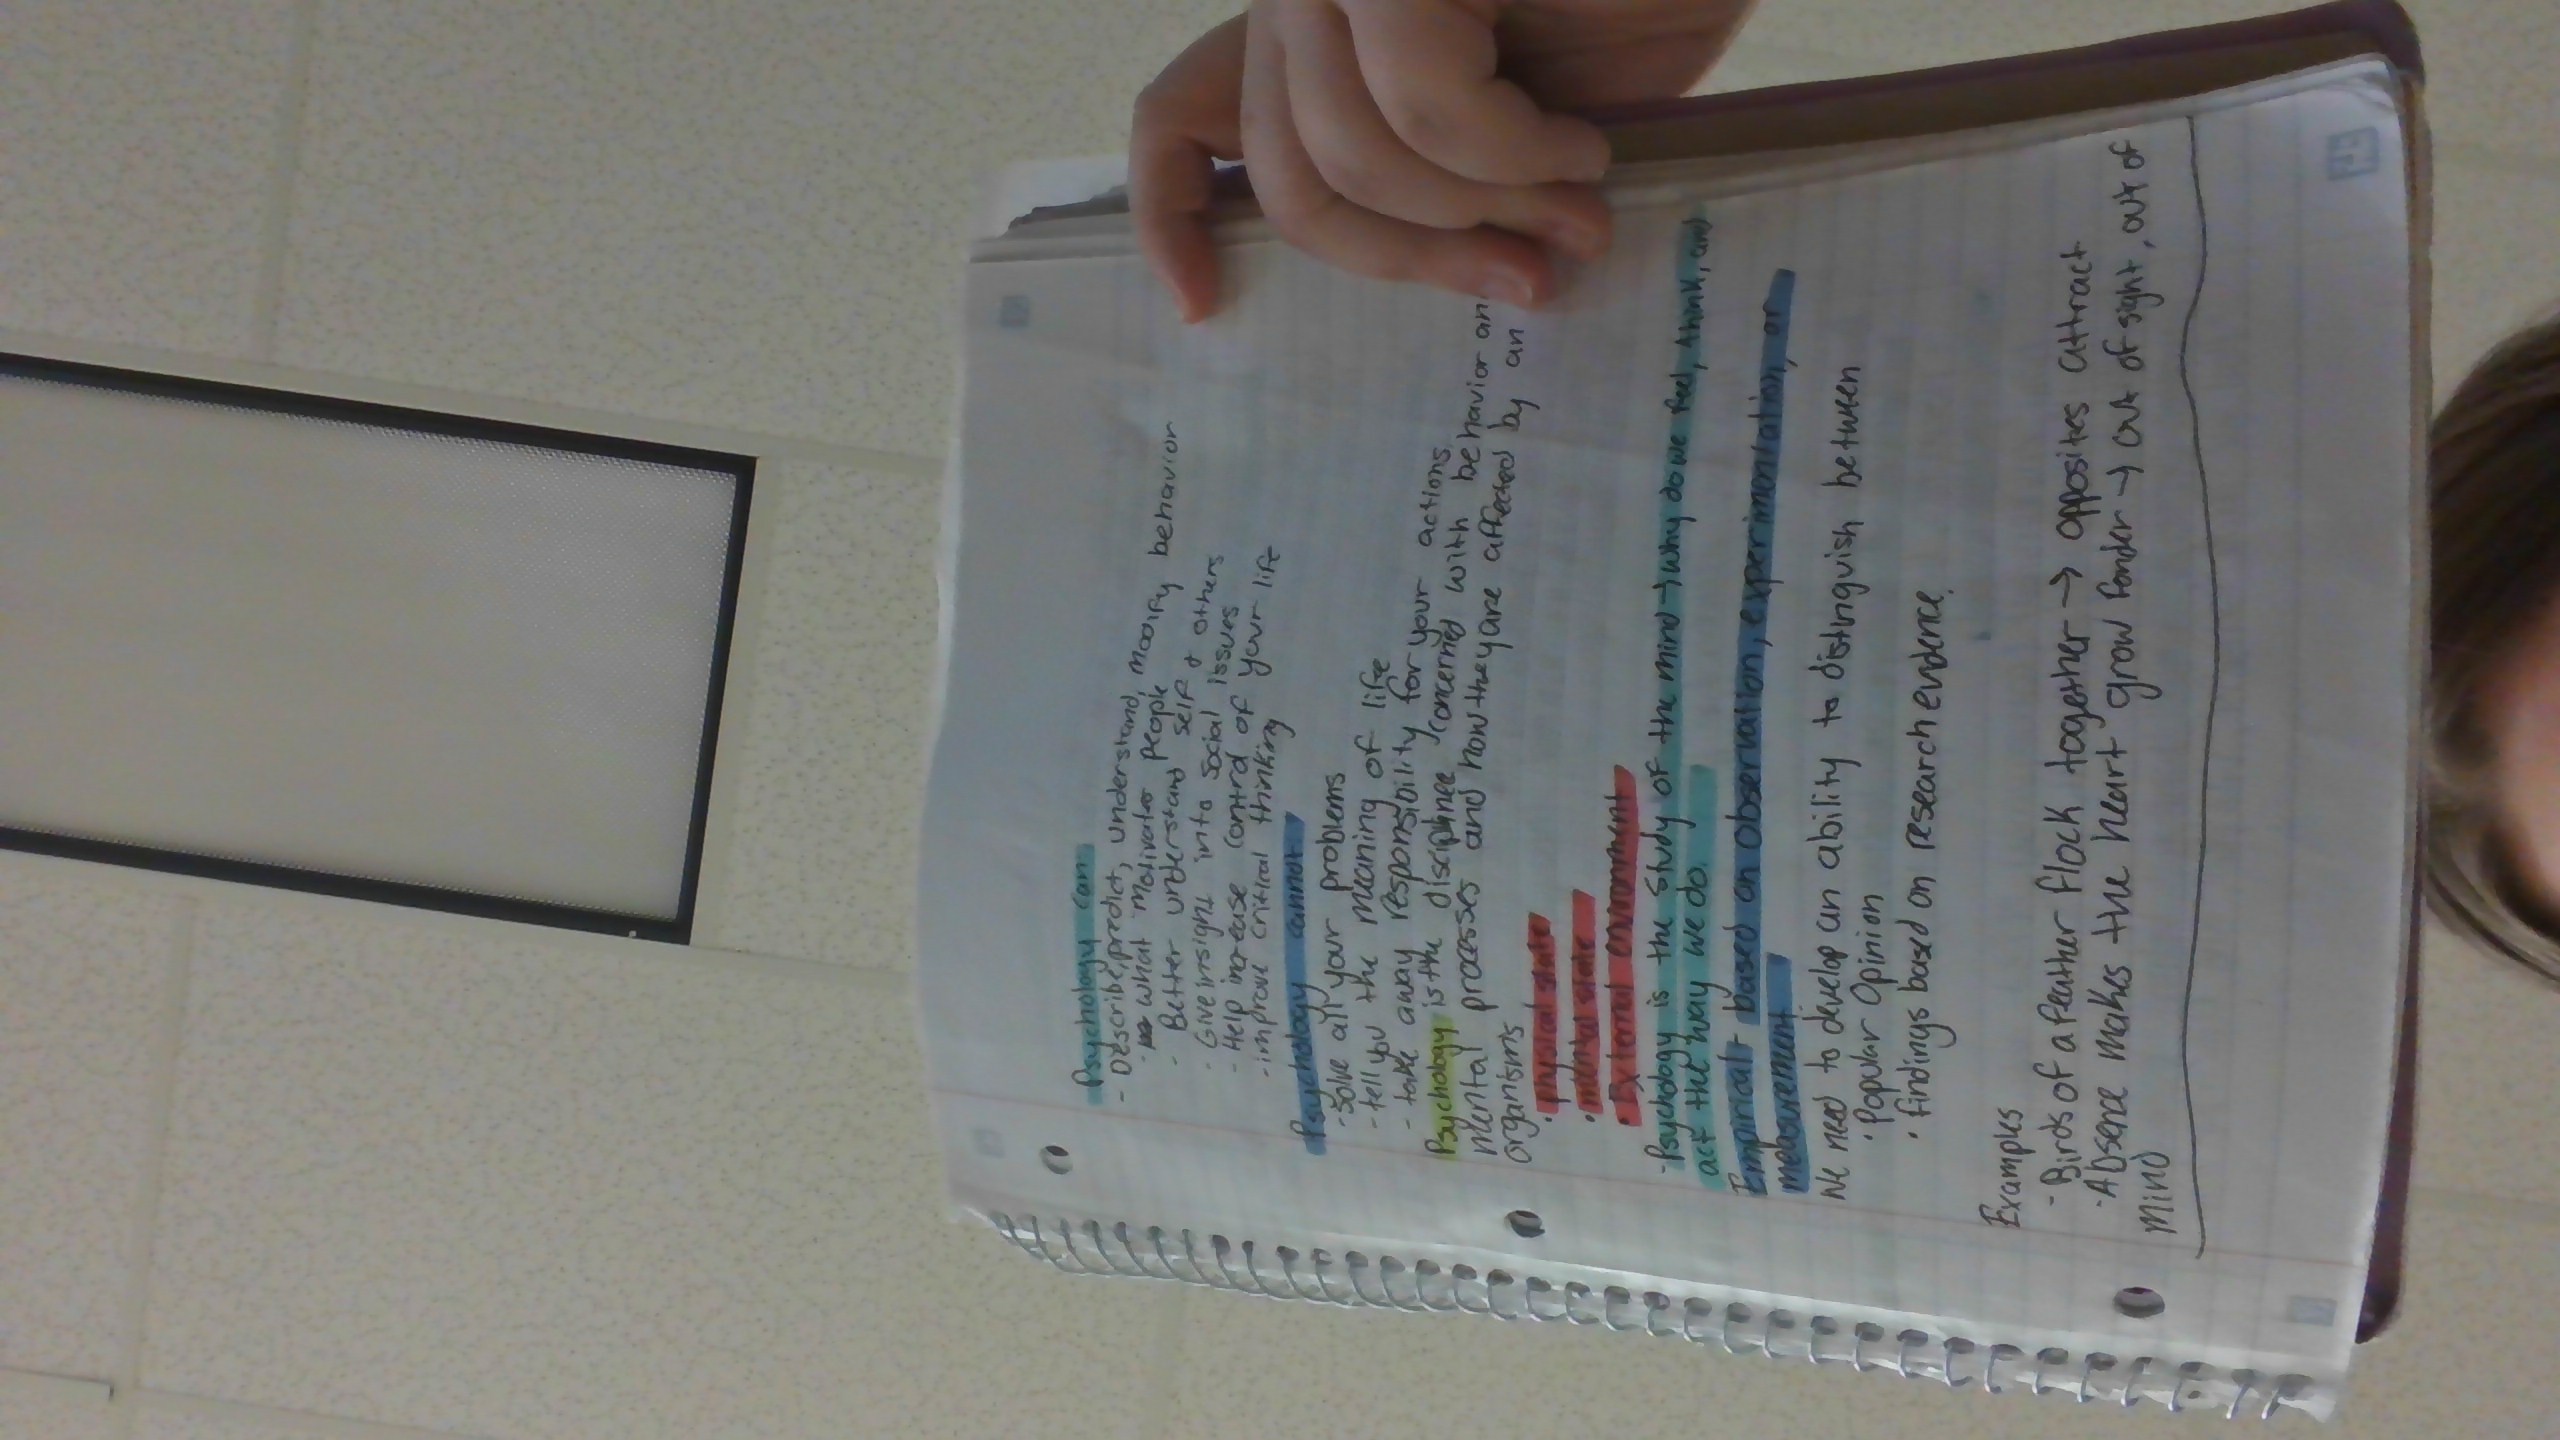 Psychology can
- Describe, predict, understand, modify behavior
- what motivates people
- Better understand self & others
- Give insight into social issues
- Help increase control of your life
- improve critical thinking
Psychology cannot
- Solve all your problems
- tell you the meaning of life
- take away responsibility for your actions
Psychology is the discipline concerned with behavior an
mental processes and how they are affected by an
organisms
• physical state
• mental state
• External environment
- Psychology is the study of the mind → why do we feel, think, and
act the way we do.
Empirical - based on observation, experimentation, or
measurement
We need to develop an ability to distinguish between
• Popular Opinion
• findings based on research evidence.
Examples
- Birds of a feather flock together → opposites attract
- Absence makes the heart grow fonder → out of sight, out of
mind